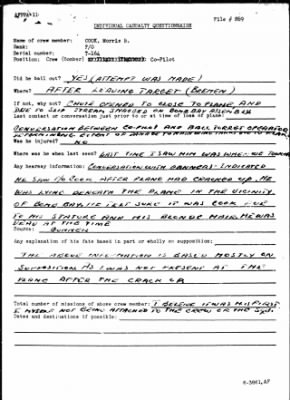 File # 869
INDIVIDUAL CASUALTY QUESTIONNAIRE
Name of crew member: COOK, Morris D.
Rank: F/O
Serial number: T-164
Position: Crew (Bomber) Co-Pilot
Did he bail out? YES (ATTEMPT WAS MADE)
Where? AFTER LEAVING TARGET (BREMEN)
If not, why not? CHUTE OPENED TO CLOSE TO PLANE, AND
DUE TO SLIP STREAM SNAGGED ON BOMB BAY
Last contact or conversation just prior to or at time of loss of plane:
CONVERSATION BETWEEN CO-PILOT AND BALL TURRET OPERATOR
Was he injured? NO
Where was he when last seen? LAST TIME I SAW HIM WAS WHEN WE
Any hearsay information: CONVERSATION WITH GUNNERS - INDICATED
HE SAW F/O COOK AFTER PLANE HAD CRACKED UP. HE
WAS LYING BENEATH THE PLANE IN THE VICINITY
OF BOMB BAY. HE FELT SURE IT WAS COOK DUE
TO HIS STATURE AND HIS BLONDE HAIR. HE WAS
DEAD AT THE TIME
Source: GUNNER
Any explanation of his fate based in part or wholly on supposition:
THE ABOVE INFORMATION IS BASED MOSTLY ON
SUPPOSITION AS I WAS NOT PRESENT AT THE
PLANE AFTER THE CRACK UP
Total number of missions of above crew member: I BELIEVE IT WAS HIS FIRST
I MYSELF NOT BEING ATTACHED TO THE CREW OR THE SQD.
Dates and destinations if possible: